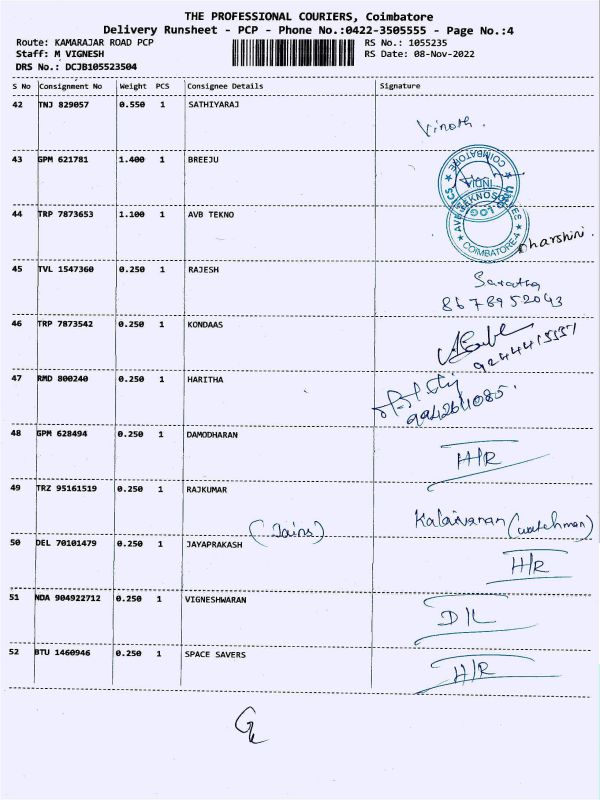 THE PROFESSIONAL COURIERS, Coimbatore
Delivery Runsheet - PCP - Phone No.:0422-3505555 - Page No.:4
Route: KAMARAJAR ROAD PCP RS No.: 1055235
Staff: M VIGNESH RS Date: 08-Nov-2022
DRS No.: DCJB105523504
S No Consignment No Weight PCS Consignee Details Signature
42 TNJ 829057 0.550 1 SATHIYARAJ
Vinoth.
43 GPM 621781 1.400 1 BREEJU
COIMBATORE
INDIA
44 TRP 7873653 1.100 1 AVB TEKNO
COIMBATORE-4
Dharshini.
45 TVL 1547360 0.250 1 RAJESH
Saratha
8678952043
46 TRP 7873542 0.250 1 KONDAAS
47 RMD 800240 0.250 1 HARITHA
48 GPM 628494 0.250 1 DAMODHARAN
H/R
49 TRZ 95161519 0.250 1 RAJKUMAR
(Jains) Kalaivanan (watchman)
50 DEL 70101479 0.250 1 JAYAPRAKASH
H/R
51 NDA 904922712 0.250 1 VIGNESHWARAN
D/L
52 BTU 1460946 0.250 1 SPACE SAVERS
H/R